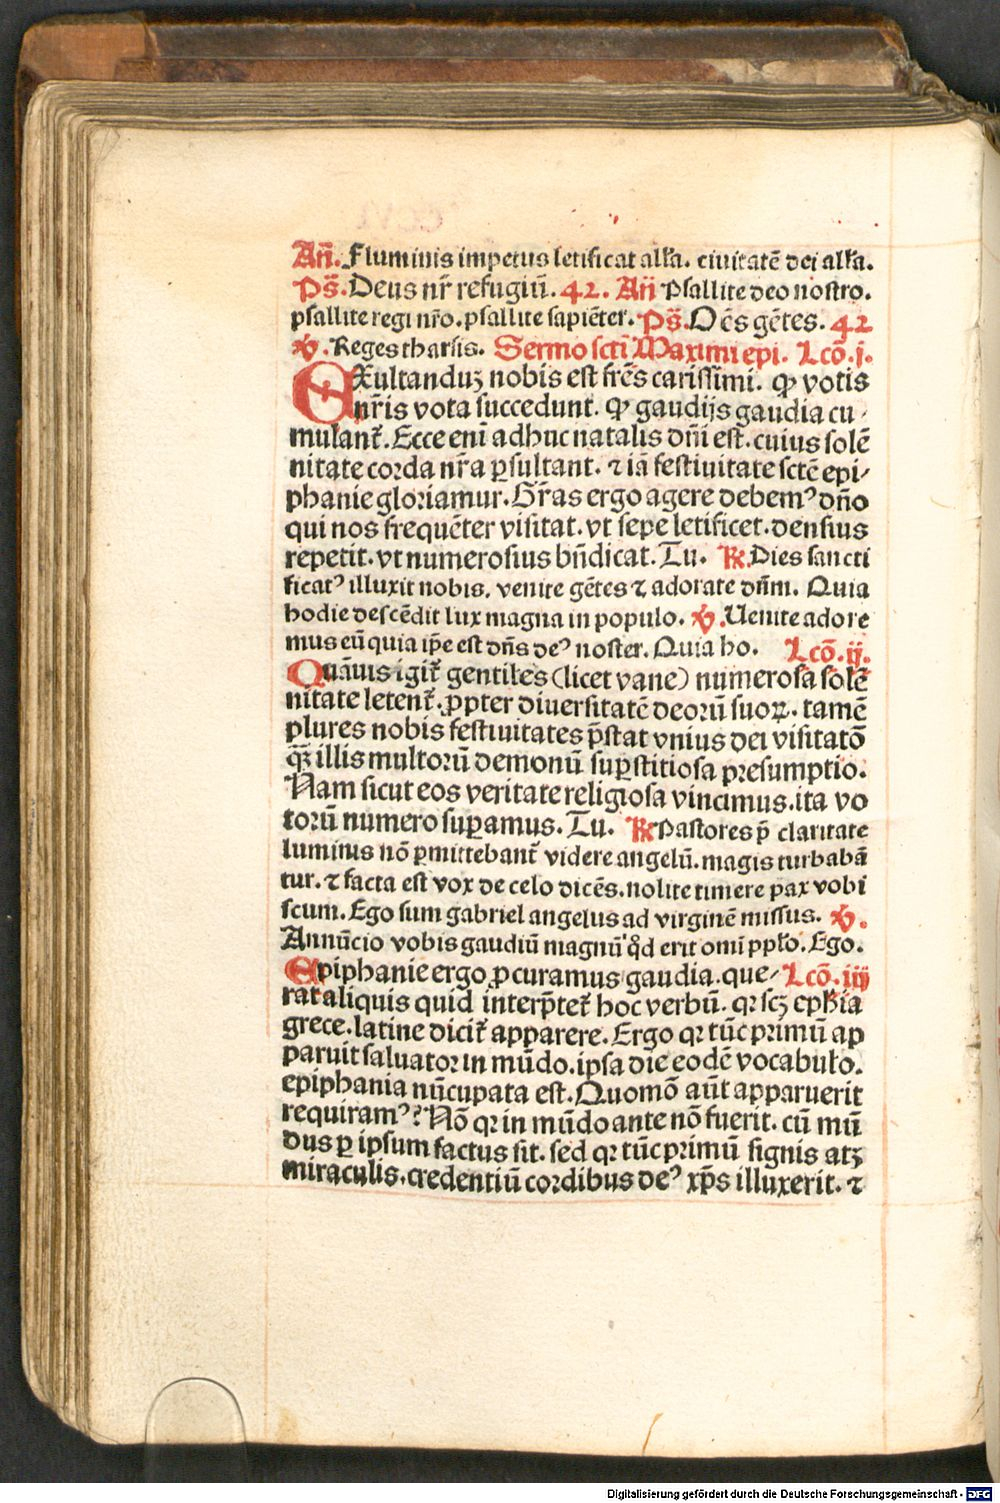 Añ. Fluminis impetus letificat alľa. ciuitatē dei alľa.
Ps̄. Deus nr̄ refugiū. 42. Añ Psallite deo nostro.
psallite regi nr̄o. psallite sapiēter. Ps̄. Oēs gētes. 42
℣. Reges tharsis. Sermo scti Maximi epi. Lcō. i.
EXultanduꝫ nobis est frēs carissimi. ꝙ votis
nr̄is vota succedunt. ꝙ gaudijs gaudia cu⸗
mulant᷑. Ecce eni adhuc natalis dñi est. cuius solē
nitate corda nr̄a ꝑsultant. ⁊ iā festiuitate sctē epi⸗
phanie gloriamur. Gr̄as ergo agere debemꝰ dño
qui nos frequēter visitat. vt sepe letificet. densius
repetit. vt numerosius bñdicat. Tu. ℞. Dies sancti
ficatꝰ illuxit nobis. venite gētes ⁊ adorate dñm. Quia
hodie descēdit lux magna in populo. ℣. Uenite adore
mus eū quia ip̄e est dñs deꝰ noster. Quia ho. Lcō. ij.
Quāuis igit᷑ gentiles (licet vane) numerosa solē
nitate letent᷑. ꝓpter diuersitatē deorū suoꝝ. tamē
plures nobis festiuitates p̄stat vnius dei visitatō
q̄ꝫ illis multorū demonū suꝑstitiosa presumptio.
Nam sicut eos veritate religiosa vincimus. ita vo
torū numero suꝑamus. Tu. ℞ Pastores p̄ claritate
luminis nō ꝑmittebant᷑ videre angelū. magis turbabā
tur. ⁊ facta est vox de celo dicēs. nolite timere pax vobi
scum. Ego sum gabriel angelus ad virginē missus. ℣.
Annūcio vobis gaudiū magnū qd̄ erit omi pplo. Ego.
Epiphanie ergo ꝓcuramus gaudia. que⸗ Lcō. iij
rat aliquis quid interp̄tet᷑ hoc verbū. qꝛ scꝫ epħia
grece. latine dicit᷑ apparere. Ergo qꝛ tūc primū ap
paruit saluator in mūdo. ipsa die eodē vocabulo.
epiphania nūcupata est. Quomō aūt apparuerit
requiramꝰ? Nō qꝛ in mūdo ante nō fuerit. cū mū
dus ꝑ ipsum factus sit. sed qꝛ tūc primū signis atꝫ
miraculis. credentiū cordibus deꝰ xp̄s illuxerit. ⁊
Digitalisierung gefördert durch die Deutsche Forschungsgemeinschaft - DFG